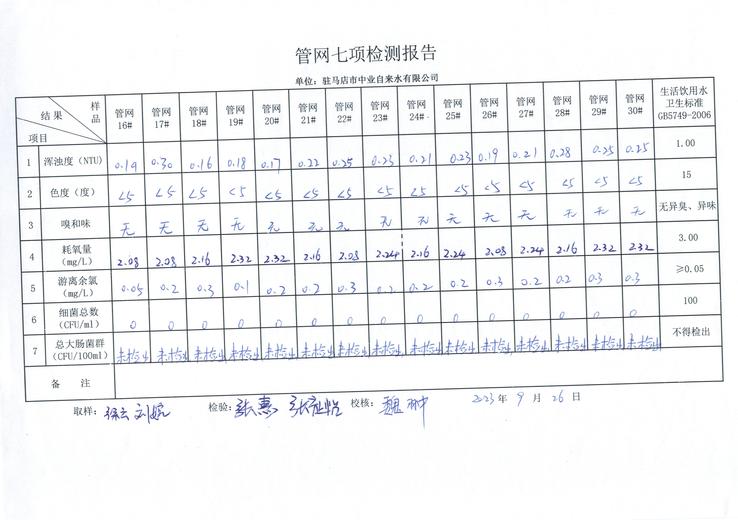 管网七项检测报告
单位：驻马店市中业自来水有限公司
结果 样品 项目 管网16# 管网17# 管网18# 管网19# 管网20# 管网21# 管网22# 管网23# 管网24# 管网25# 管网26# 管网27# 管网28# 管网29# 管网30# 生活饮用水卫生标准GB5749-2006
1 浑浊度（NTU） 0.19 0.30 0.16 0.18 0.17 0.22 0.25 0.23 0.21 0.23 0.19 0.21 0.28 0.25 0.25 1.00
2 色度（度） <5 <5 <5 <5 <5 <5 <5 <5 <5 <5 <5 <5 <5 <5 <5 15
3 嗅和味 无 无 无 无 无 无 无 无 无 无 无 无 无 无 无 无异臭、异味
4 耗氧量（mg/L） 2.08 2.08 2.16 2.32 2.32 2.16 2.08 2.24 2.16 2.24 2.08 2.24 2.16 2.32 2.32 3.00
5 游离余氯（mg/L） 0.05 0.2 0.3 0.1 0.2 0.2 0.3 0.2 0.2 0.2 0.3 0.2 0.2 0.3 0.3 ≥0.05
6 细菌总数（CFU/ml） 0 0 0 0 0 0 0 0 0 0 0 0 0 0 0 100
7 总大肠菌群（CFU/100ml） 未检出 未检出 未检出 未检出 未检出 未检出 未检出 未检出 未检出 未检出 未检出 未检出 未检出 未检出 未检出 不得检出
备 注
取样： 刘 检验： 张 校核： 魏 2023年 9 月 26 日